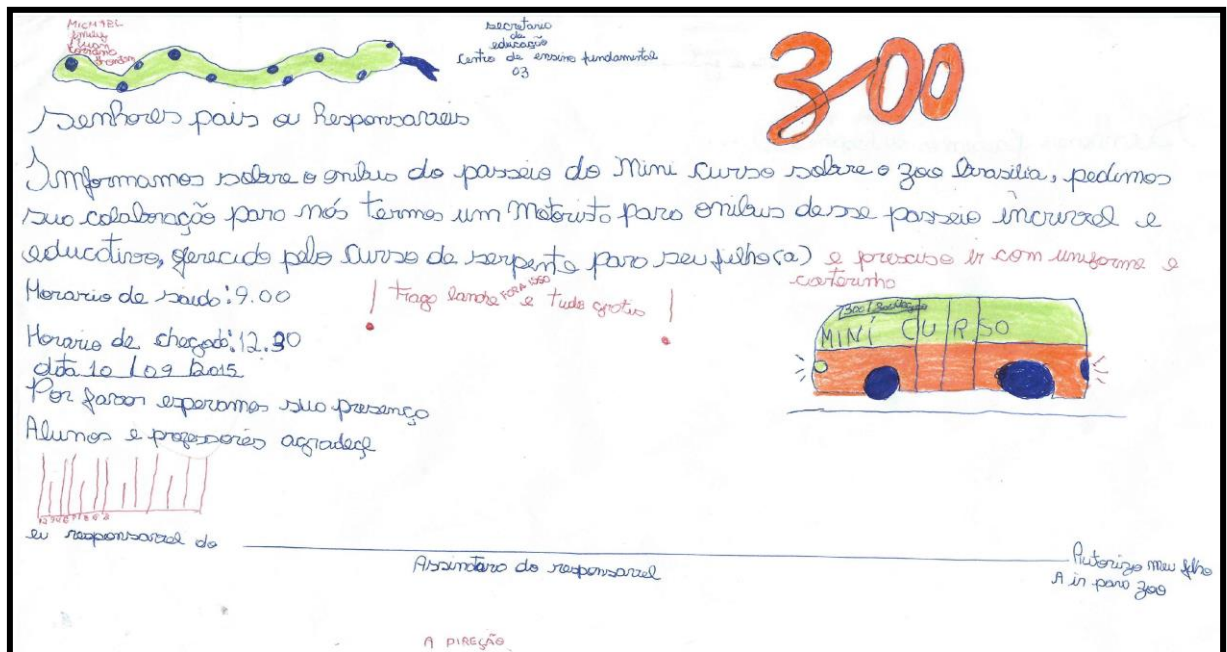 MICHAEL
Emily
secretario
de
educação
Centro de ensino fundamental
03
ZOO
Senhores pais ou Responsaveis
Imformamos sobre o onibus do passeio do Mini Curso sobre o zoo Brasilia, pedimos
sua colaboração para nós termos um Motorista para onibus desse passeio incrivel e
educativo, oferecido pelo Curso da serpente para seu filho(a) e preciso ir com uniforme e
carterinha
Horario de saida: 9.00
! Traga lanche FORA ISSO e tudo gratis !
Horario de chegada: 12.30
data 10 / 09 2015
MINÍ CURSO
Por favor esperamos sua presença
Alunos e professores agradeçe
eu responsavel do
Autorizo meu filho
Assinatura do responsavel
A ir para zoo
A DIREÇÃO